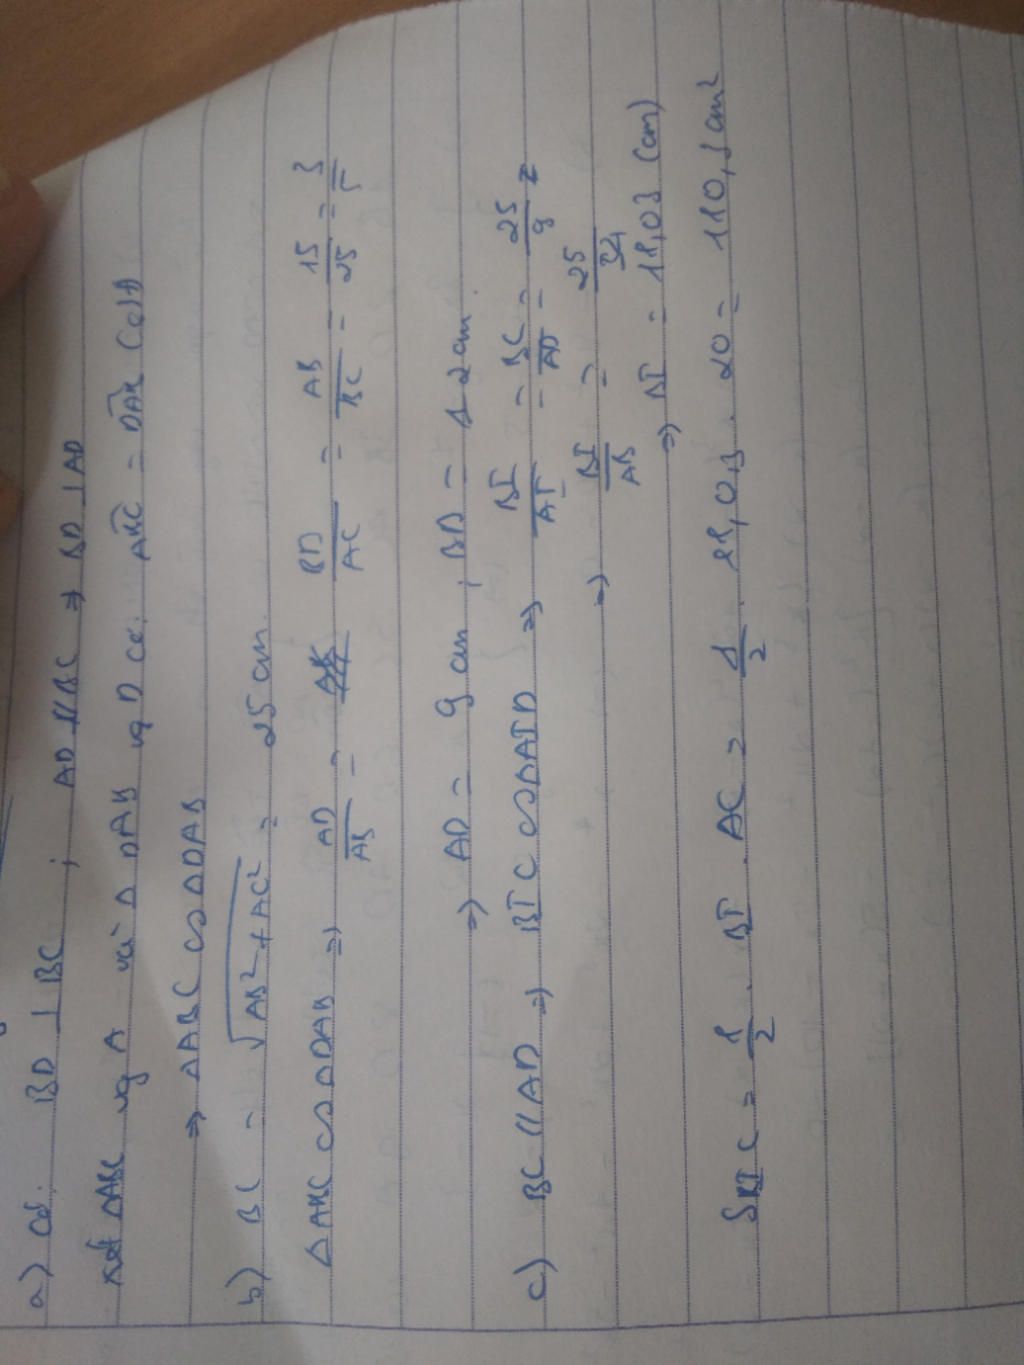 a) Có: BD ⊥ BC ; AD // BC ⇒ BD ⊥ AD
Xét ΔABC vg A và Δ DAB vg D có: ABC = DAB (SLT)
⇒ ΔABC ∽ ΔDAB
b) BC = √AB² + AC² = 25 cm.
ΔABC ∽ ΔDAB ⇒ AD/AB = BD/AC = AB/BC = 15/25 = 3/5
⇒ AD = 9 cm ; BD = 12 cm
c) BC // AD ⇒ BIC ∽ ΔAID ⇒ BI/AI = BC/AD = 25/9
⇒ BI/AB = 25/34
⇒ BI = 11,03 (cm)
SBIC = 1/2 . BI . AC = 1/2 . 11,03 . 20 = 110,3 cm²